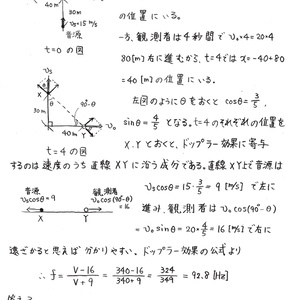 30m
の位置にいる。
v_s=15 m/s
音源
t=0 の図
一方、観測者は4秒間で v_o×4=20×4
80[m]右に進むから、t=4では x=-40+80
=40[m]の位置にいる。
左図のようにθをおくと cosθ=3/5,
sinθ=4/5 となる。t=4のそれぞれの位置を
X, Yとおくと、ドップラー効果に寄与
v_s
X
30m
θ
90-θ
Y
v_o
40m
t=4 の図
するのは速度のうち直線XYに沿う成分である。直線XY上で音源は
音源
v_s cosθ=9
観測者
v_o cos(90-θ)
=16
X
Y
v_s cosθ=15・3/5=9 [m/s] で左に
進み、観測者は v_o cos(90-θ)
=v_o sinθ=20・4/5=16 [m/s] で右に
遠ざかると思えば分かりやすい。ドップラー効果の公式より
∴ f = V-16/V+9 = 340-16/340+9 = 324/349 = 92.8 [Hz]